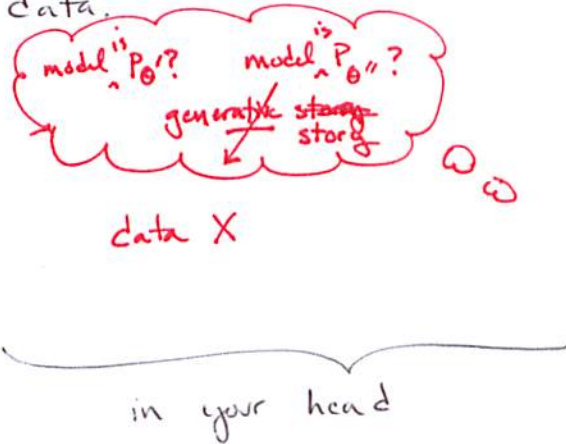 data.
model is P_θ'? model is P_θ''?
generative story
story
data X
in your head